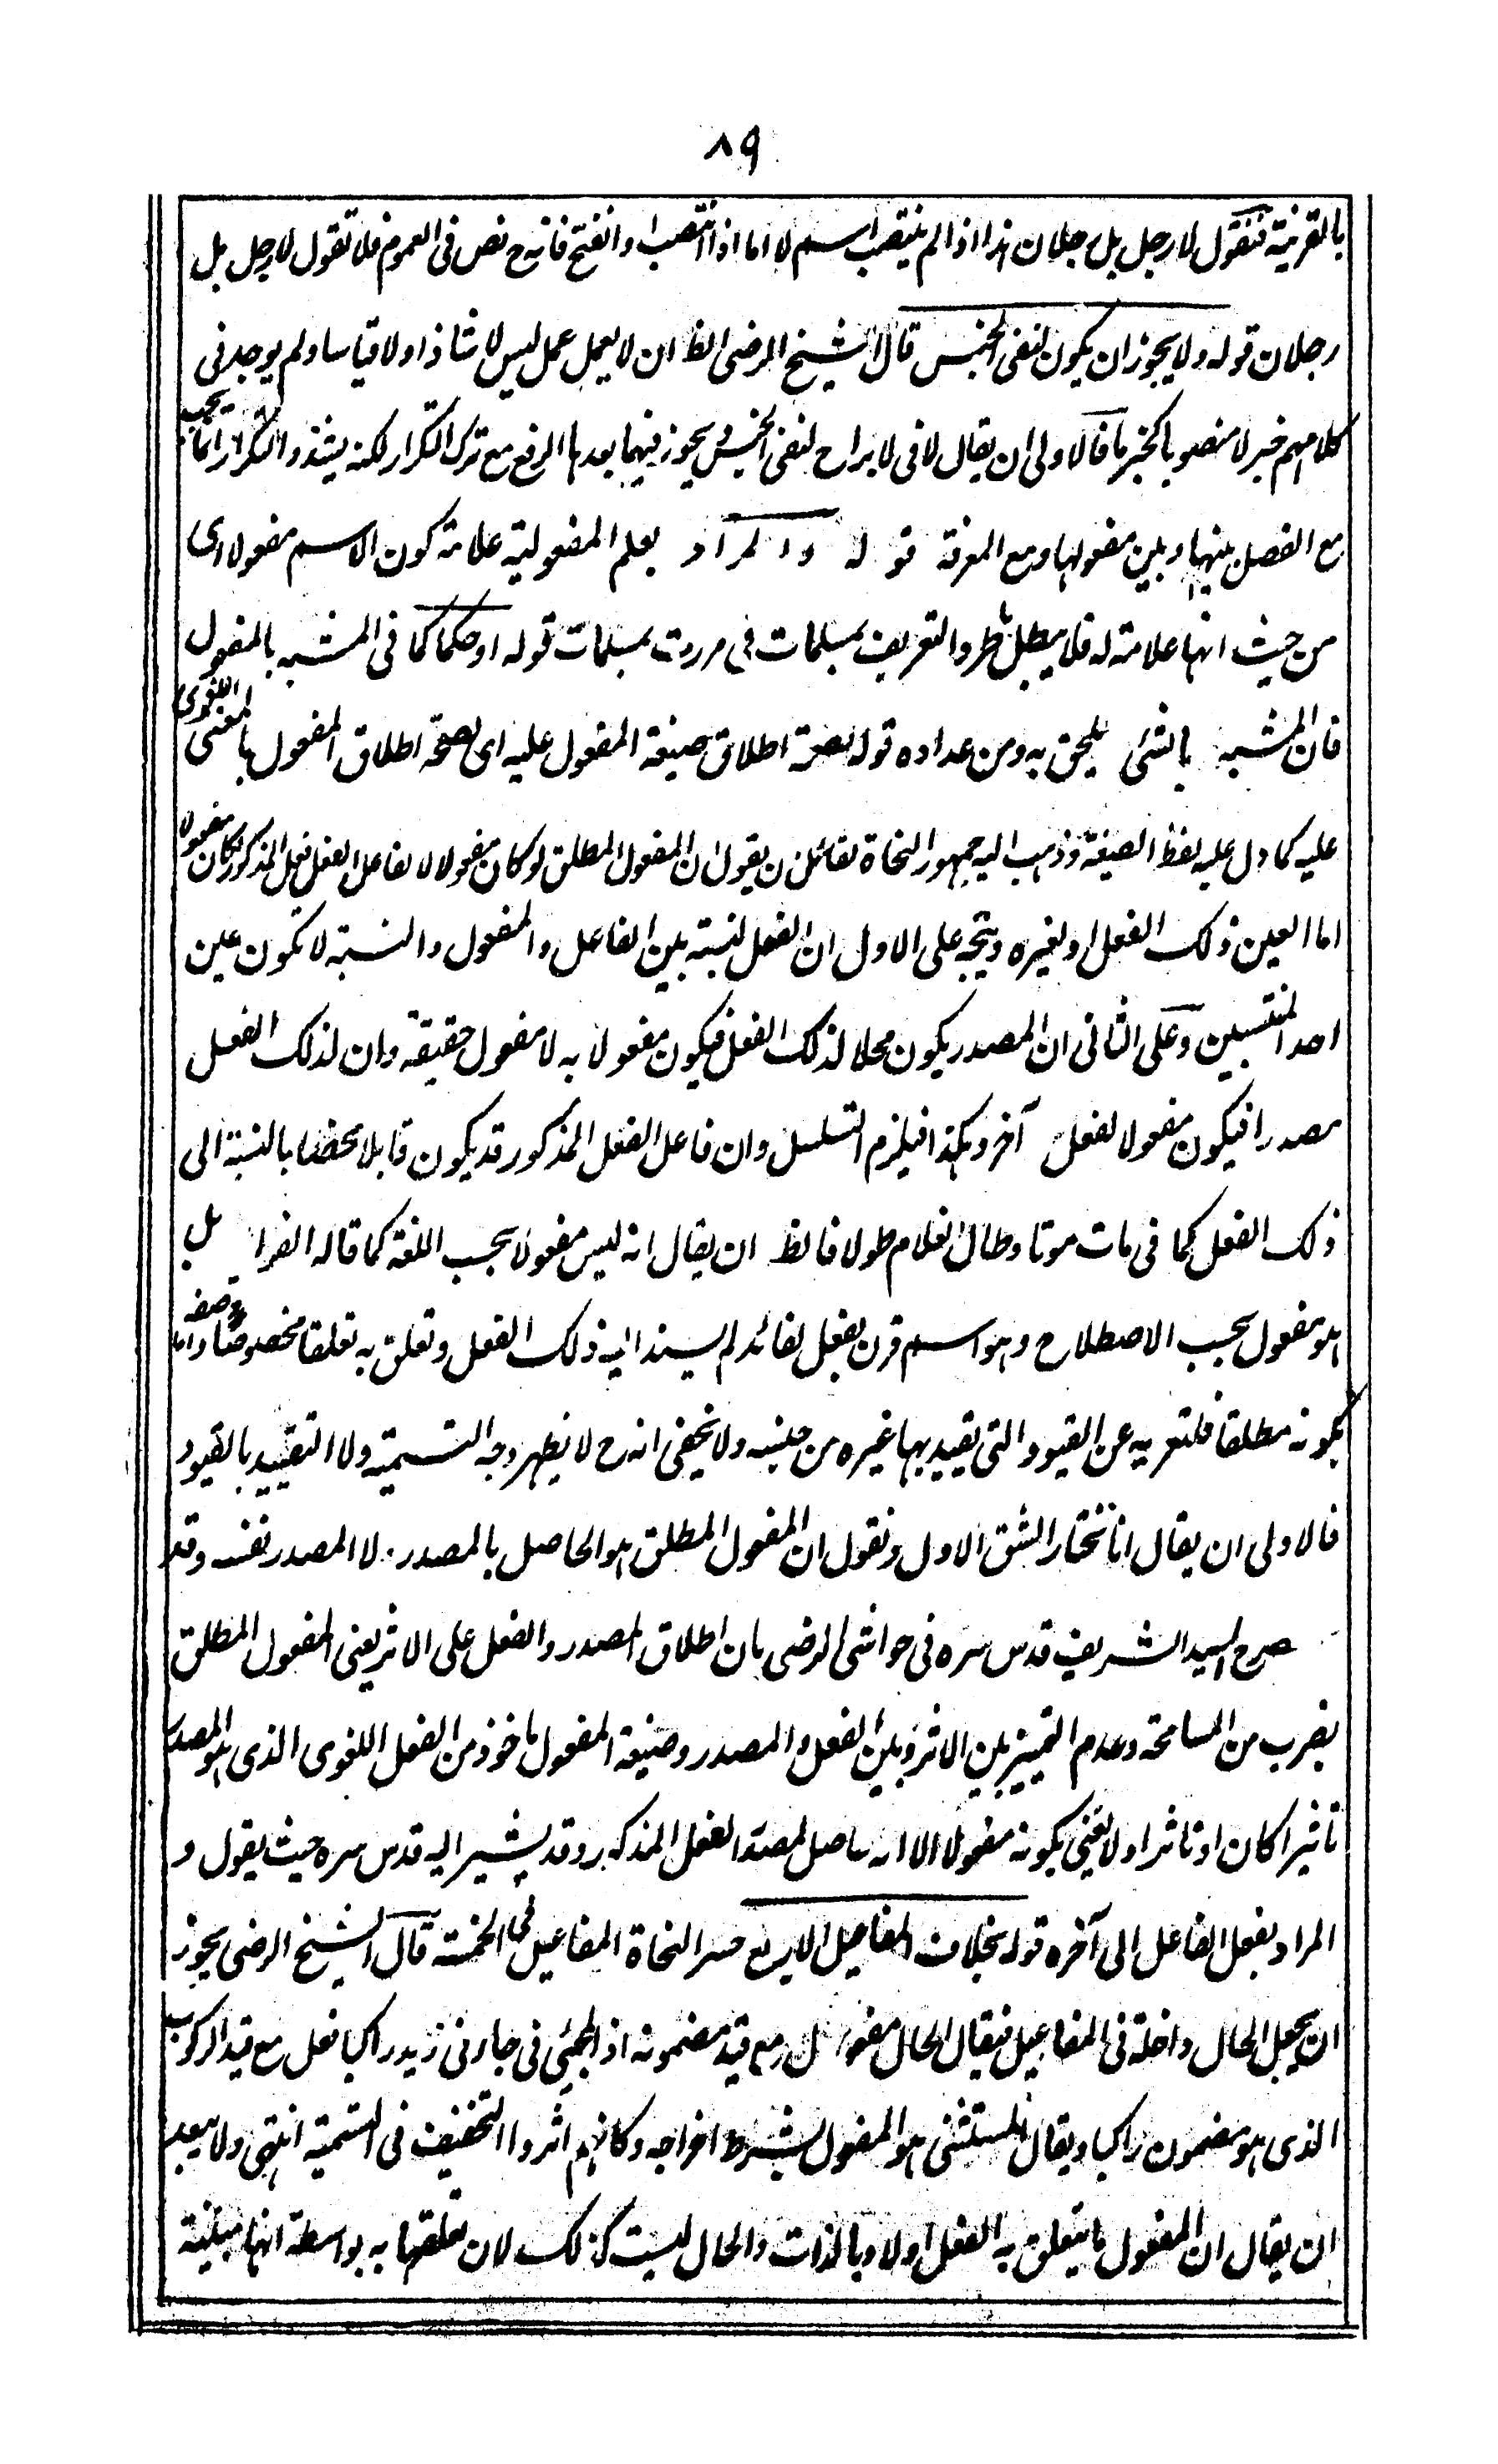 ٨٩
بالقرينة فنقول لا رجل بل رجلان هذا اذا لم ينتصب اسم لا اما اذا انتصب او انفتح فانه ح نص فى العموم فلا تقول لا رجل بل
رجلان قوله ولا يجوز ان يكون لنفى الجنس قال الشيخ الرضى الظ ان لا يعمل عمل ليس لا شاذا ولا قياسا ولم يوجد فى
كلامهم خبر لا منصوبا كخبر ما فالاولى ان يقال لا فى لا براح لنفى الجنس ويجوز فيما بعدها الرفع مع ترك التكرار لكنه يشذ والتكرار انما يجب
مع الفصل بينها وبين معمولها ومع المعرفة قوله والمراد بعلم المفعولية علامة كون الاسم مفعولا اى
من حيث انها علامة له فلا يبطل طرد التعريف بمسلمات فى مررت بمسلمات قوله او حكما كما فى المشبه بالمفعول
فان المشبه بالشئ يلحق به ومن عداده قوله لصحة اطلاق صيغة المفعول عليه اى لصحة اطلاق المفعول بالمعنى اللغوى
عليه كما دل عليه لفظ الصيغة وذهب اليه جمهور النحاة لقائل ان يقول ان المفعول المطلق لو كان مفعولا لفاعل الفعل المذكور لكان مفعولا
اما لعين ذلك الفعل او لغيره ويتجه على الاول ان الفعل نسبة بين الفاعل والمفعول والنسبة لا تكون عين
احد المنتسبين وعلى الثانى ان المصدر يكون محلا لذلك الفعل فيكون مفعولا به لا مفعول حقيقة وان لذلك الفعل
مصدرا فيكون مفعولا لفعل آخر وهكذا فيلزم التسلسل وان فاعل الفعل المذكور قد يكون قابلا محضا بالنسبة الى
ذلك الفعل كما فى مات موتا وطال الغلام طولا فالظ ان يقال انه ليس مفعولا بحسب اللغة كما قاله الفرا بل
هو مفعول بحسب الاصطلاح وهو اسم قرن بفعل لفائدة لم يسند اليه ذلك الفعل وتعلق به تعلقا مخصوصا واما وصفه
بكونه مطلقا فلتعريه عن القيود التى تقيد بها غيره من جنسه ولا يخفى انه ح لا يظهر وجه التسمية ولا التقييد بالقيود
فالاولى ان يقال انا نختار الشق الاول ونقول ان المفعول المطلق هو الحاصل بالمصدر لا المصدر نفسه وقد
صرح السيد الشريف قدس سره فى حواشى الرضى بان اطلاق المصدر والفعل على الاثر يعنى المفعول المطلق
بضرب من المسامحة وعدم التمييز بين الاثر وبين الفعل والمصدر وصيغة المفعول ماخوذ من الفعل اللغوى الذى هو المصدر
تاثيرا كان او تاثرا ولا يعنى بكونه مفعولا الا انه حاصل لمصدر الفعل المذكور وقد يشير اليه قدس سره حيث يقول و
المراد بفعل الفاعل الى آخره قوله بخلاف المفاعيل الاربع حصر النحاة المفاعيل فى الخمسة قال الشيخ الرضى يجوز
ان يجعل الحال داخلة فى المفاعيل فيقال الحال مفعول مع قيد مضمونه اذ المجئ فى جاءنى زيد راكبا فعل مع قيد الركوب
الذى هو مضمون راكبا ويقال المستثنى هو المفعول بشرط اخراجه وكانهم اثروا التخفيف فى التسمية انتهى ولا يبعد
ان يقال ان المفعول ما يتعلق به الفعل اولا وبالذات والحال ليست كذلك لان تعلقها به بواسطة انها مبينة